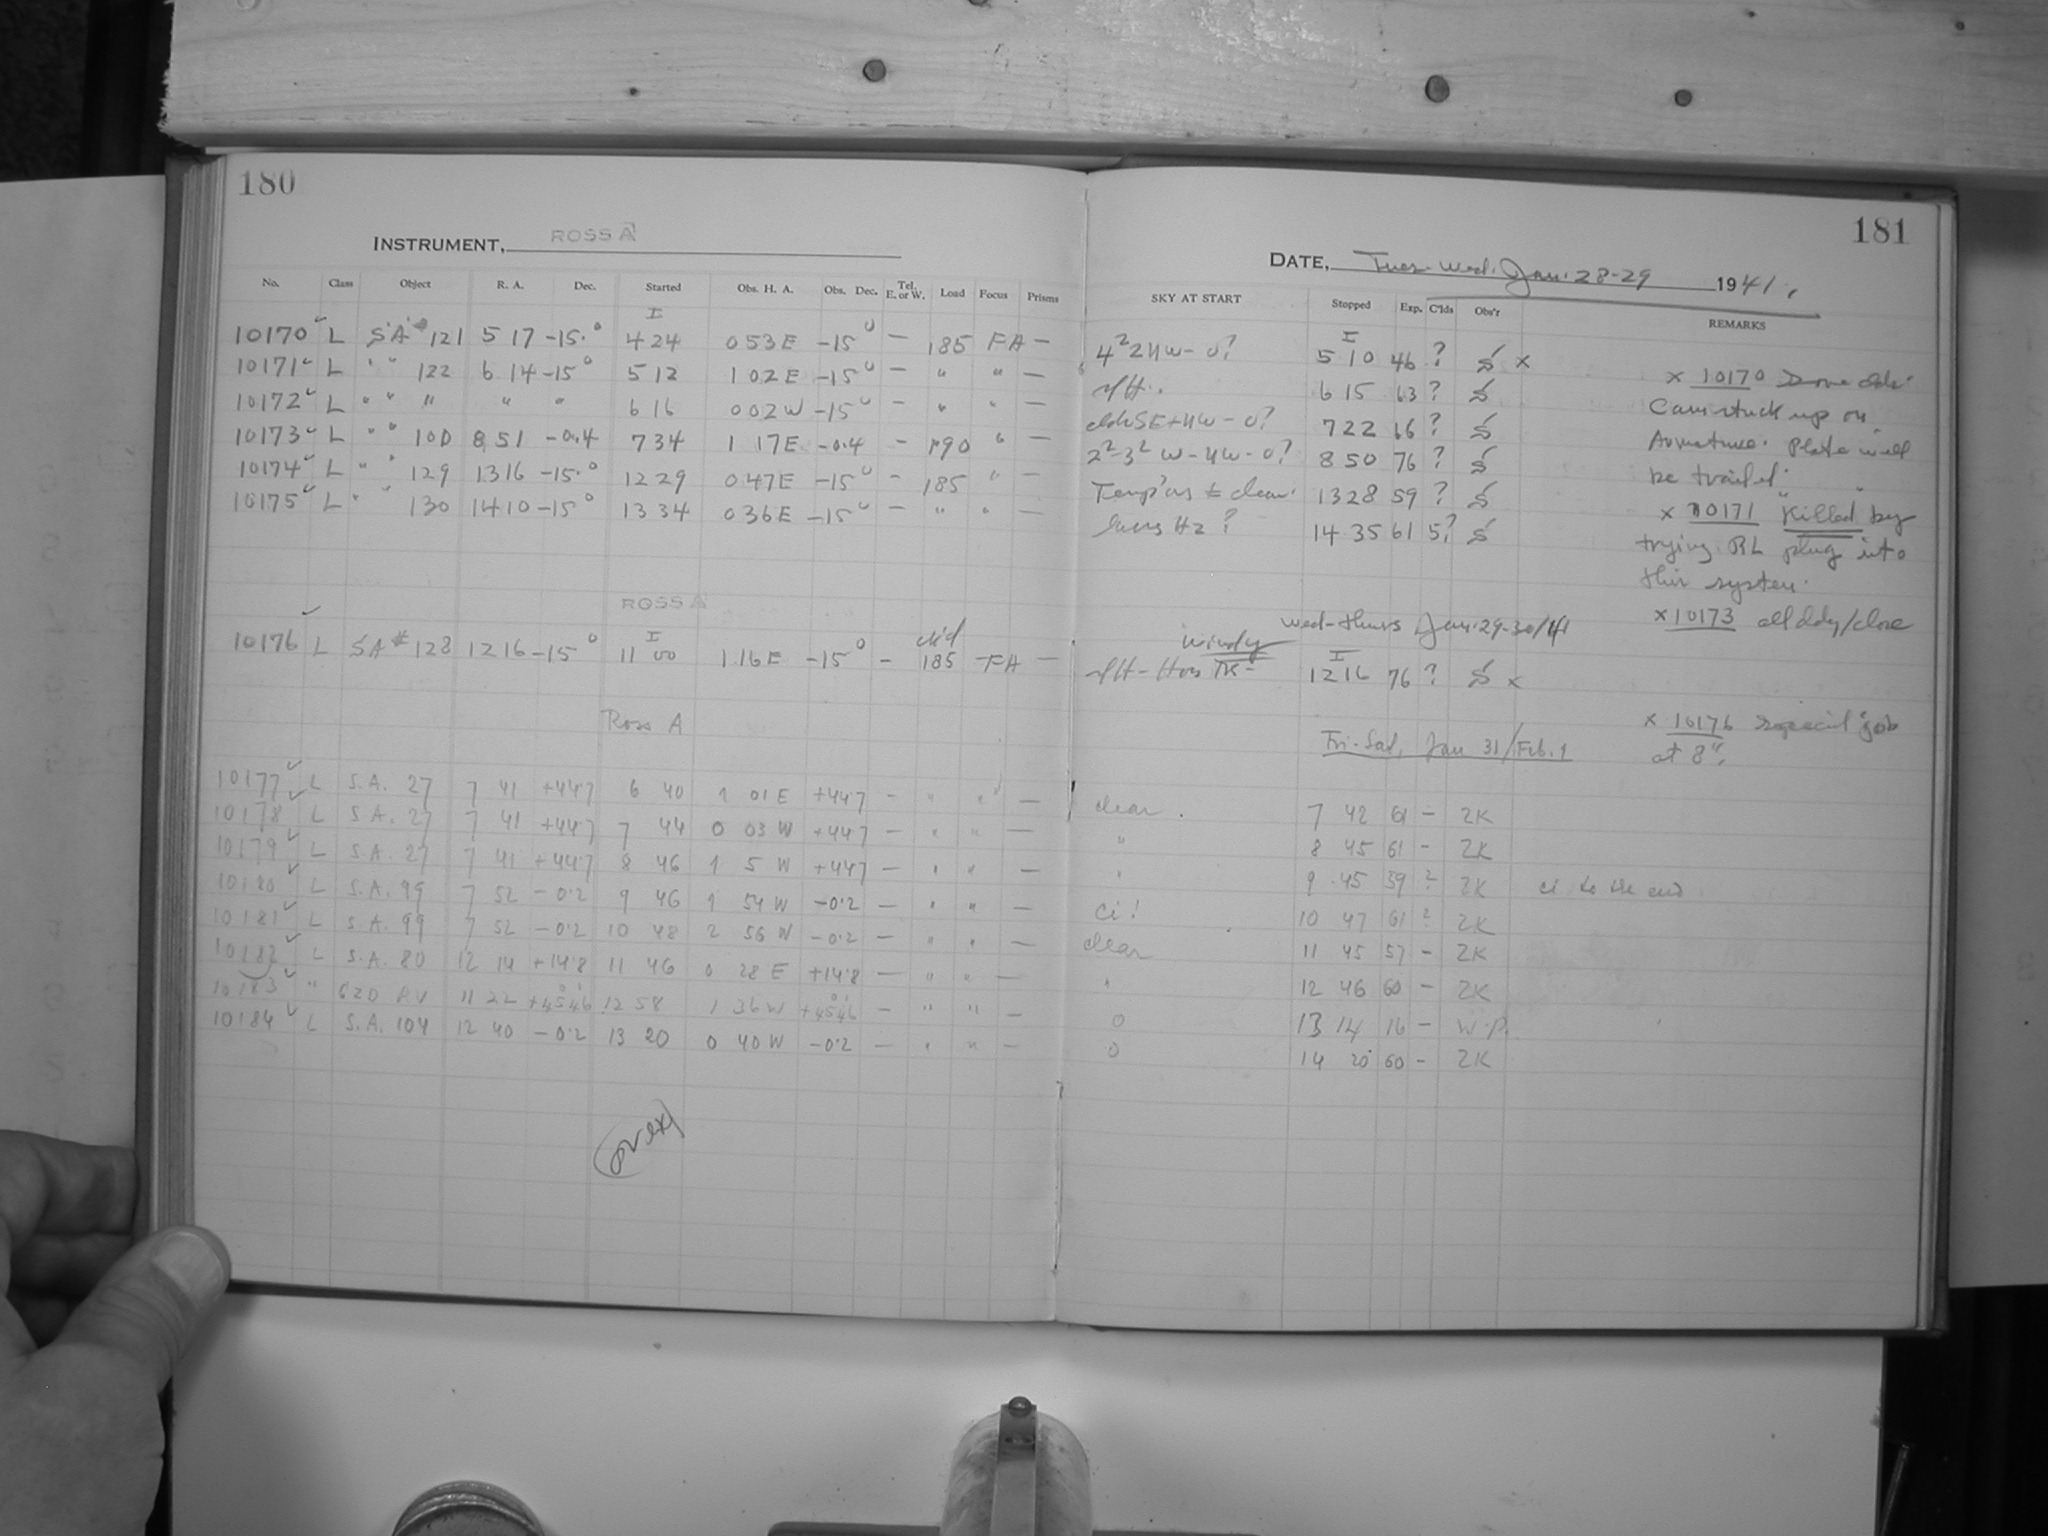 180
INSTRUMENT, ROSS A
No. Class Object R. A. Dec. Started Obs. H. A. Obs. Dec. Tel. E. or W. Load Focus Prisms
I
10170 L SA # 121 5 17 -15.° 4 24 0 53 E -15° — 185 FA —
10171 L " " 122 6 14 -15° 5 12 1 02 E -15° — " " —
10172 L " " " " " 6 16 0 02 W -15° — " " —
10173 L " " 100 8 51 -0.4 7 34 1 17 E -0.4 — 190 " —
10174 L " " 129 13 16 -15.° 12 29 0 47 E -15° — 185 "
10175 L " " 130 14 10 -15° 13 34 0 36 E -15° — " " —
ROSS A
10176 L SA # 128 12 16 -15° I 11 00 1 16 E -15° — 185 FA —
Ross A
10177 L S.A. 27 7 41 +44.7 6 40 1 01 E +44.7 — " " —
10178 L S.A. 27 7 41 +44.7 7 44 0 03 W +44.7 — " " —
10179 L S.A. 27 7 41 +44.7 8 46 1 5 W +44.7 — " " —
10180 L S.A. 99 7 52 -0.2 9 46 1 54 W -0.2 — " " —
10181 L S.A. 99 7 52 -0.2 10 48 2 56 W -0.2 — " " —
10182 L S.A. 80 12 14 +14.8 11 46 0 28 E +14.8 — " " —
10183 " 11 22 +45°46' 12 58 1 36 W +45°46' — " " —
10184 L S.A. 104 12 40 -0.2 13 20 0 40 W -0.2 — " " —
over
181
DATE, Tues-Wed. Jan. 28-29 1941,
SKY AT START Stopped Exp. C'lds Obs'r REMARKS
I
4² 2 4W - 0? 5 10 46 ? S x
6 15 63 ? S
SE + 4W - 0? 7 22 66 ? S
2²-3² W - 4W - 0? 8 50 76 ? S
clear. 13 28 59 ? S
14 35 61 5? S
x 10170 Dome
Cam stuck up on
Armature. Plate will
be trailed.
x 10171 "Killed" by
trying RL plug into
this system.
x 10173
Wed-Thurs Jan. 29-30/41
Windy
I
12 16 76 ? S x
x 10176 special job
at 8".
Fri-Sat, Jan 31/Feb. 1
clear. 7 42 61 — ZK
" 8 45 61 — ZK
" 9 45 59 ? ZK ci to the end
ci! 10 47 61 ? ZK
clear 11 45 57 — ZK
" 12 46 60 — ZK
0 13 14 16 — W.P.
0 14 20 60 — ZK